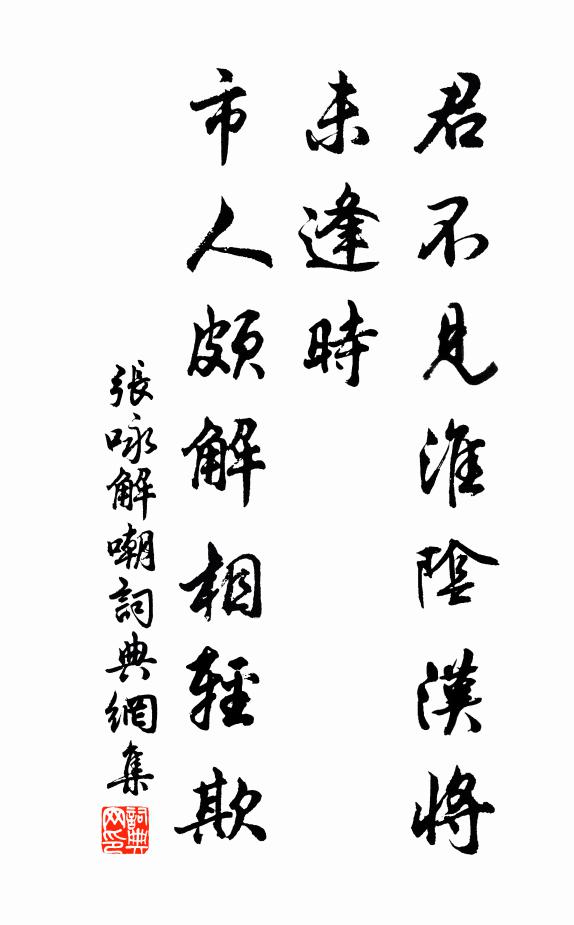 君不見淮陰漢將
未逢時
市人頗解相輕欺
張咏解嘲詞典網集
詞典
网印